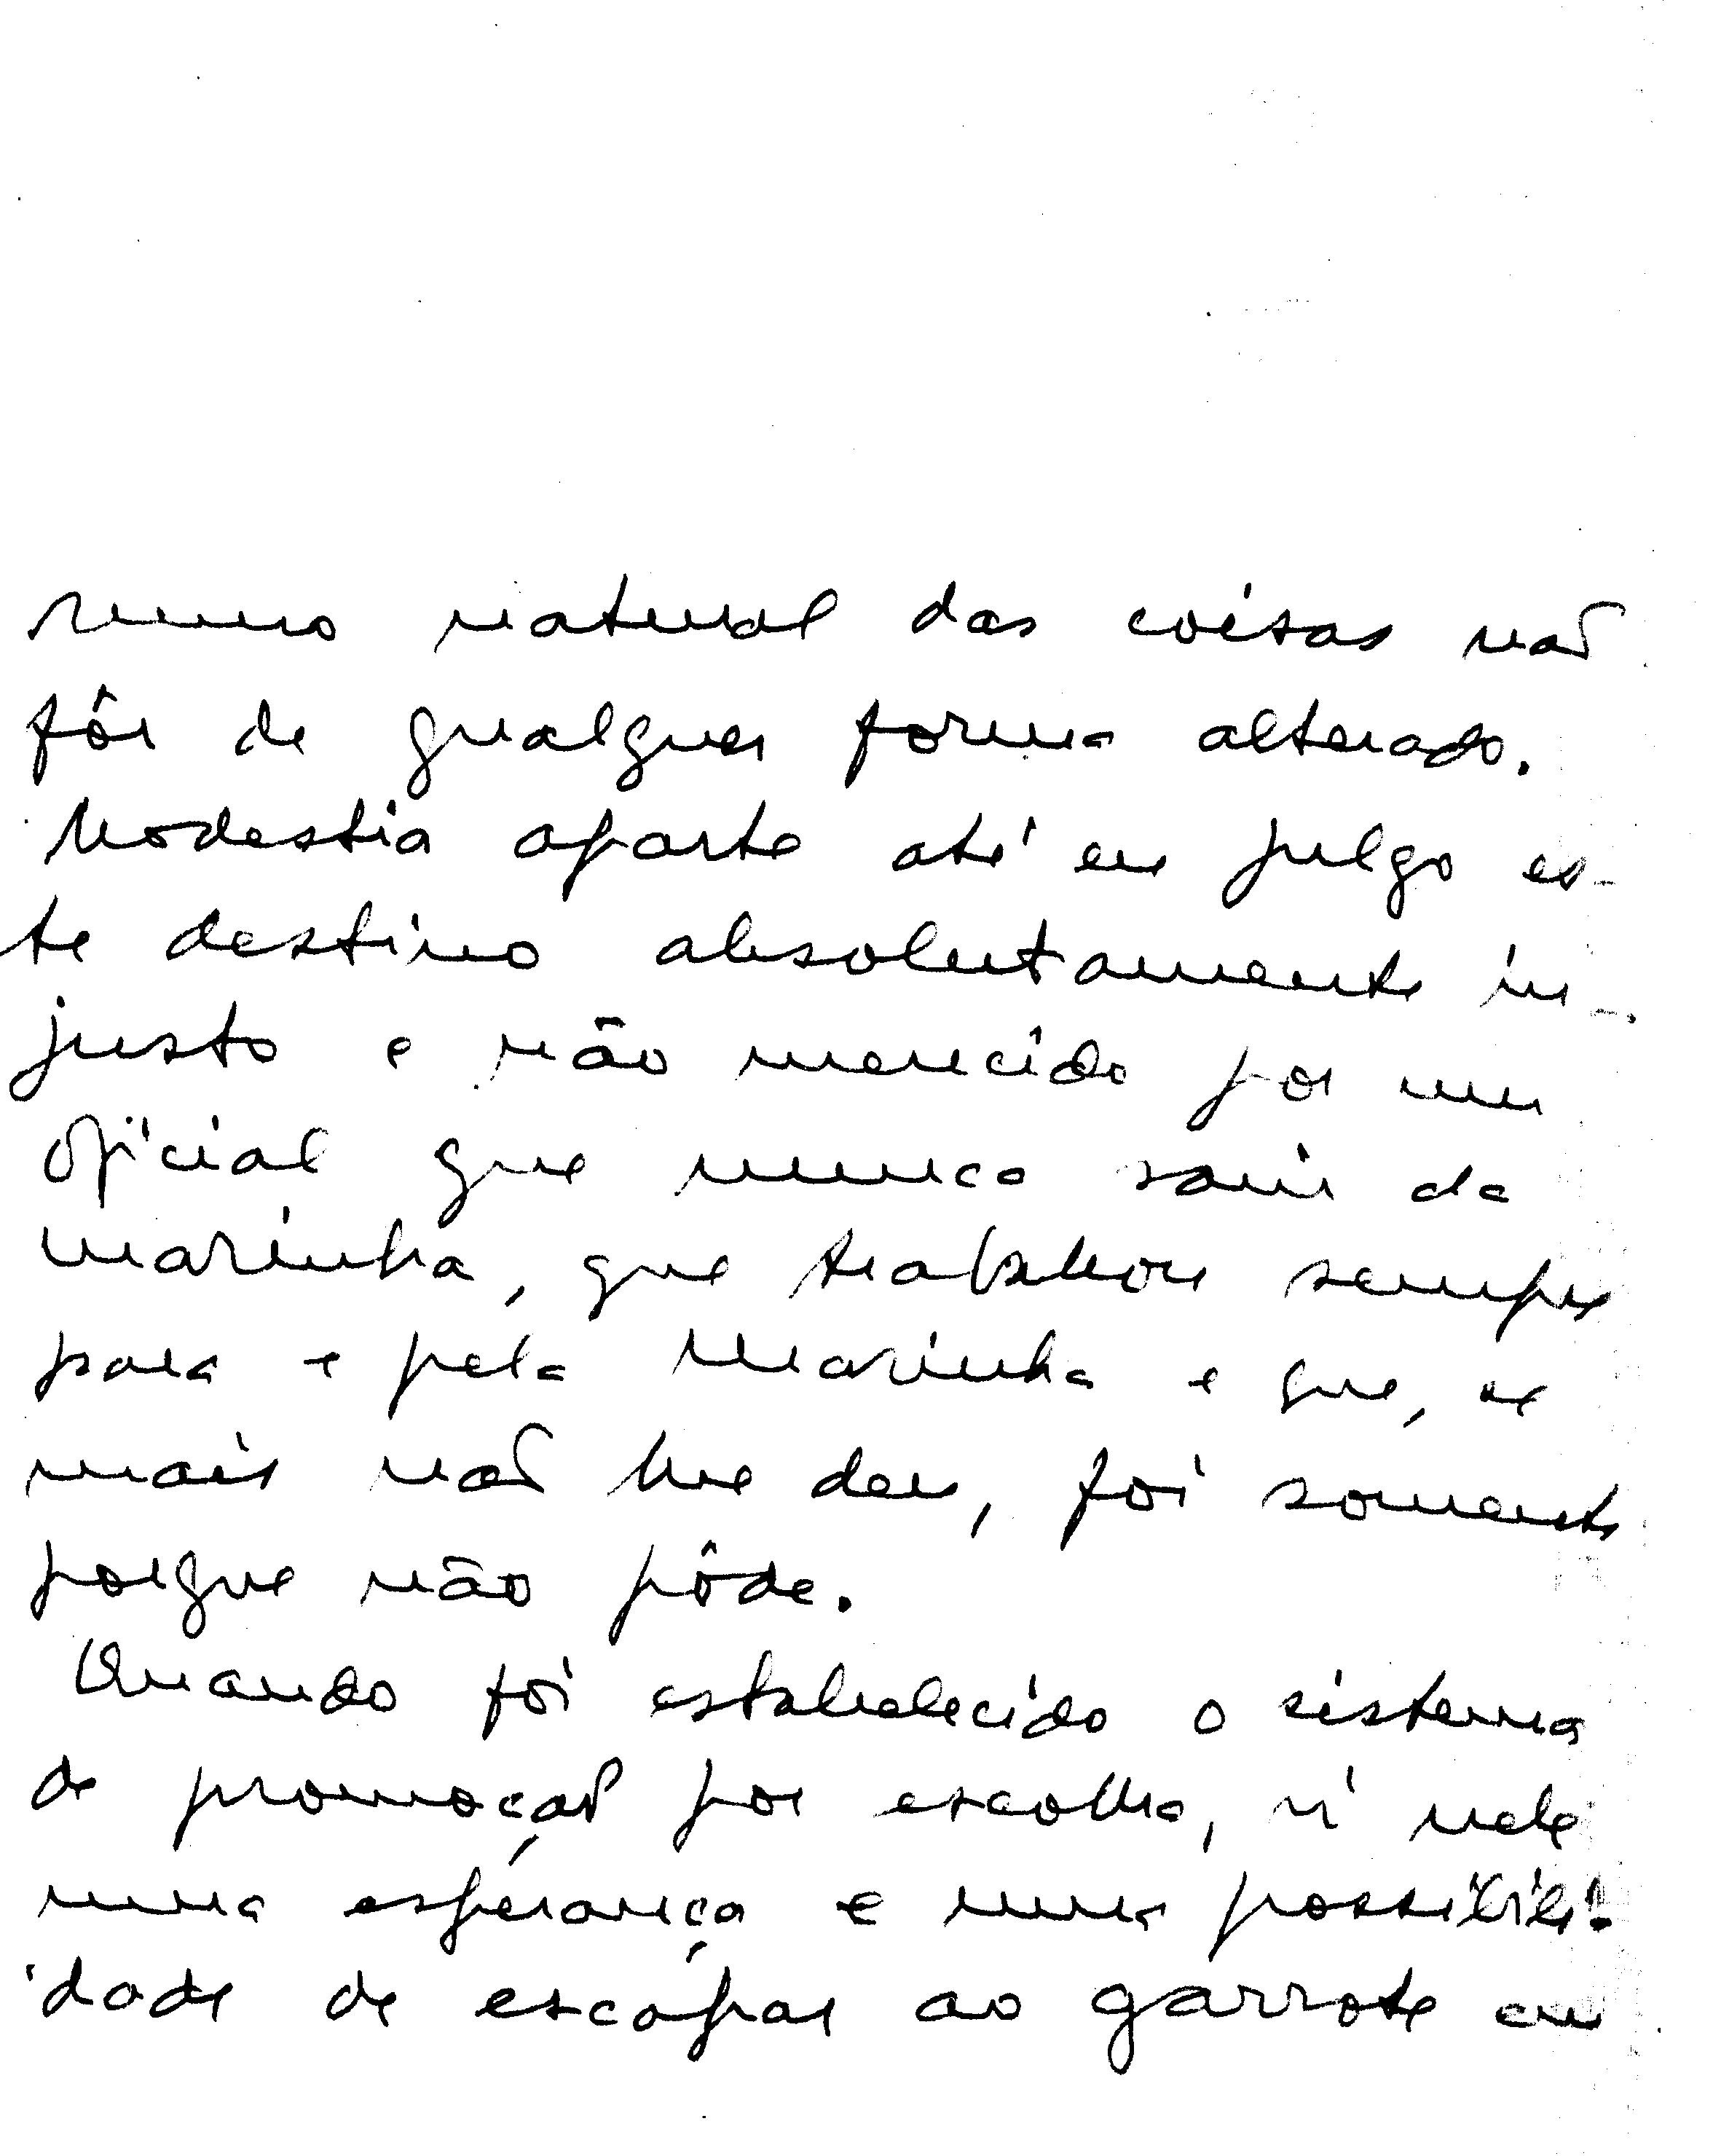 rumo natural das coisas não
fôr de qualquer forma alterado.
Modestia aparte até eu julgo es-
te destino absolutamente in-
justo e não merecido por um
oficial que nunca saiu da
marinha, que trabalhou sempre
para e pela Marinha e que, se
mais não lhe deu, foi somente
porque não pôde.
Quando foi estabelecido o sistema
de promoção por escolha, vi nele
uma esperança e uma possibili-
dade de escapar ao garrote em